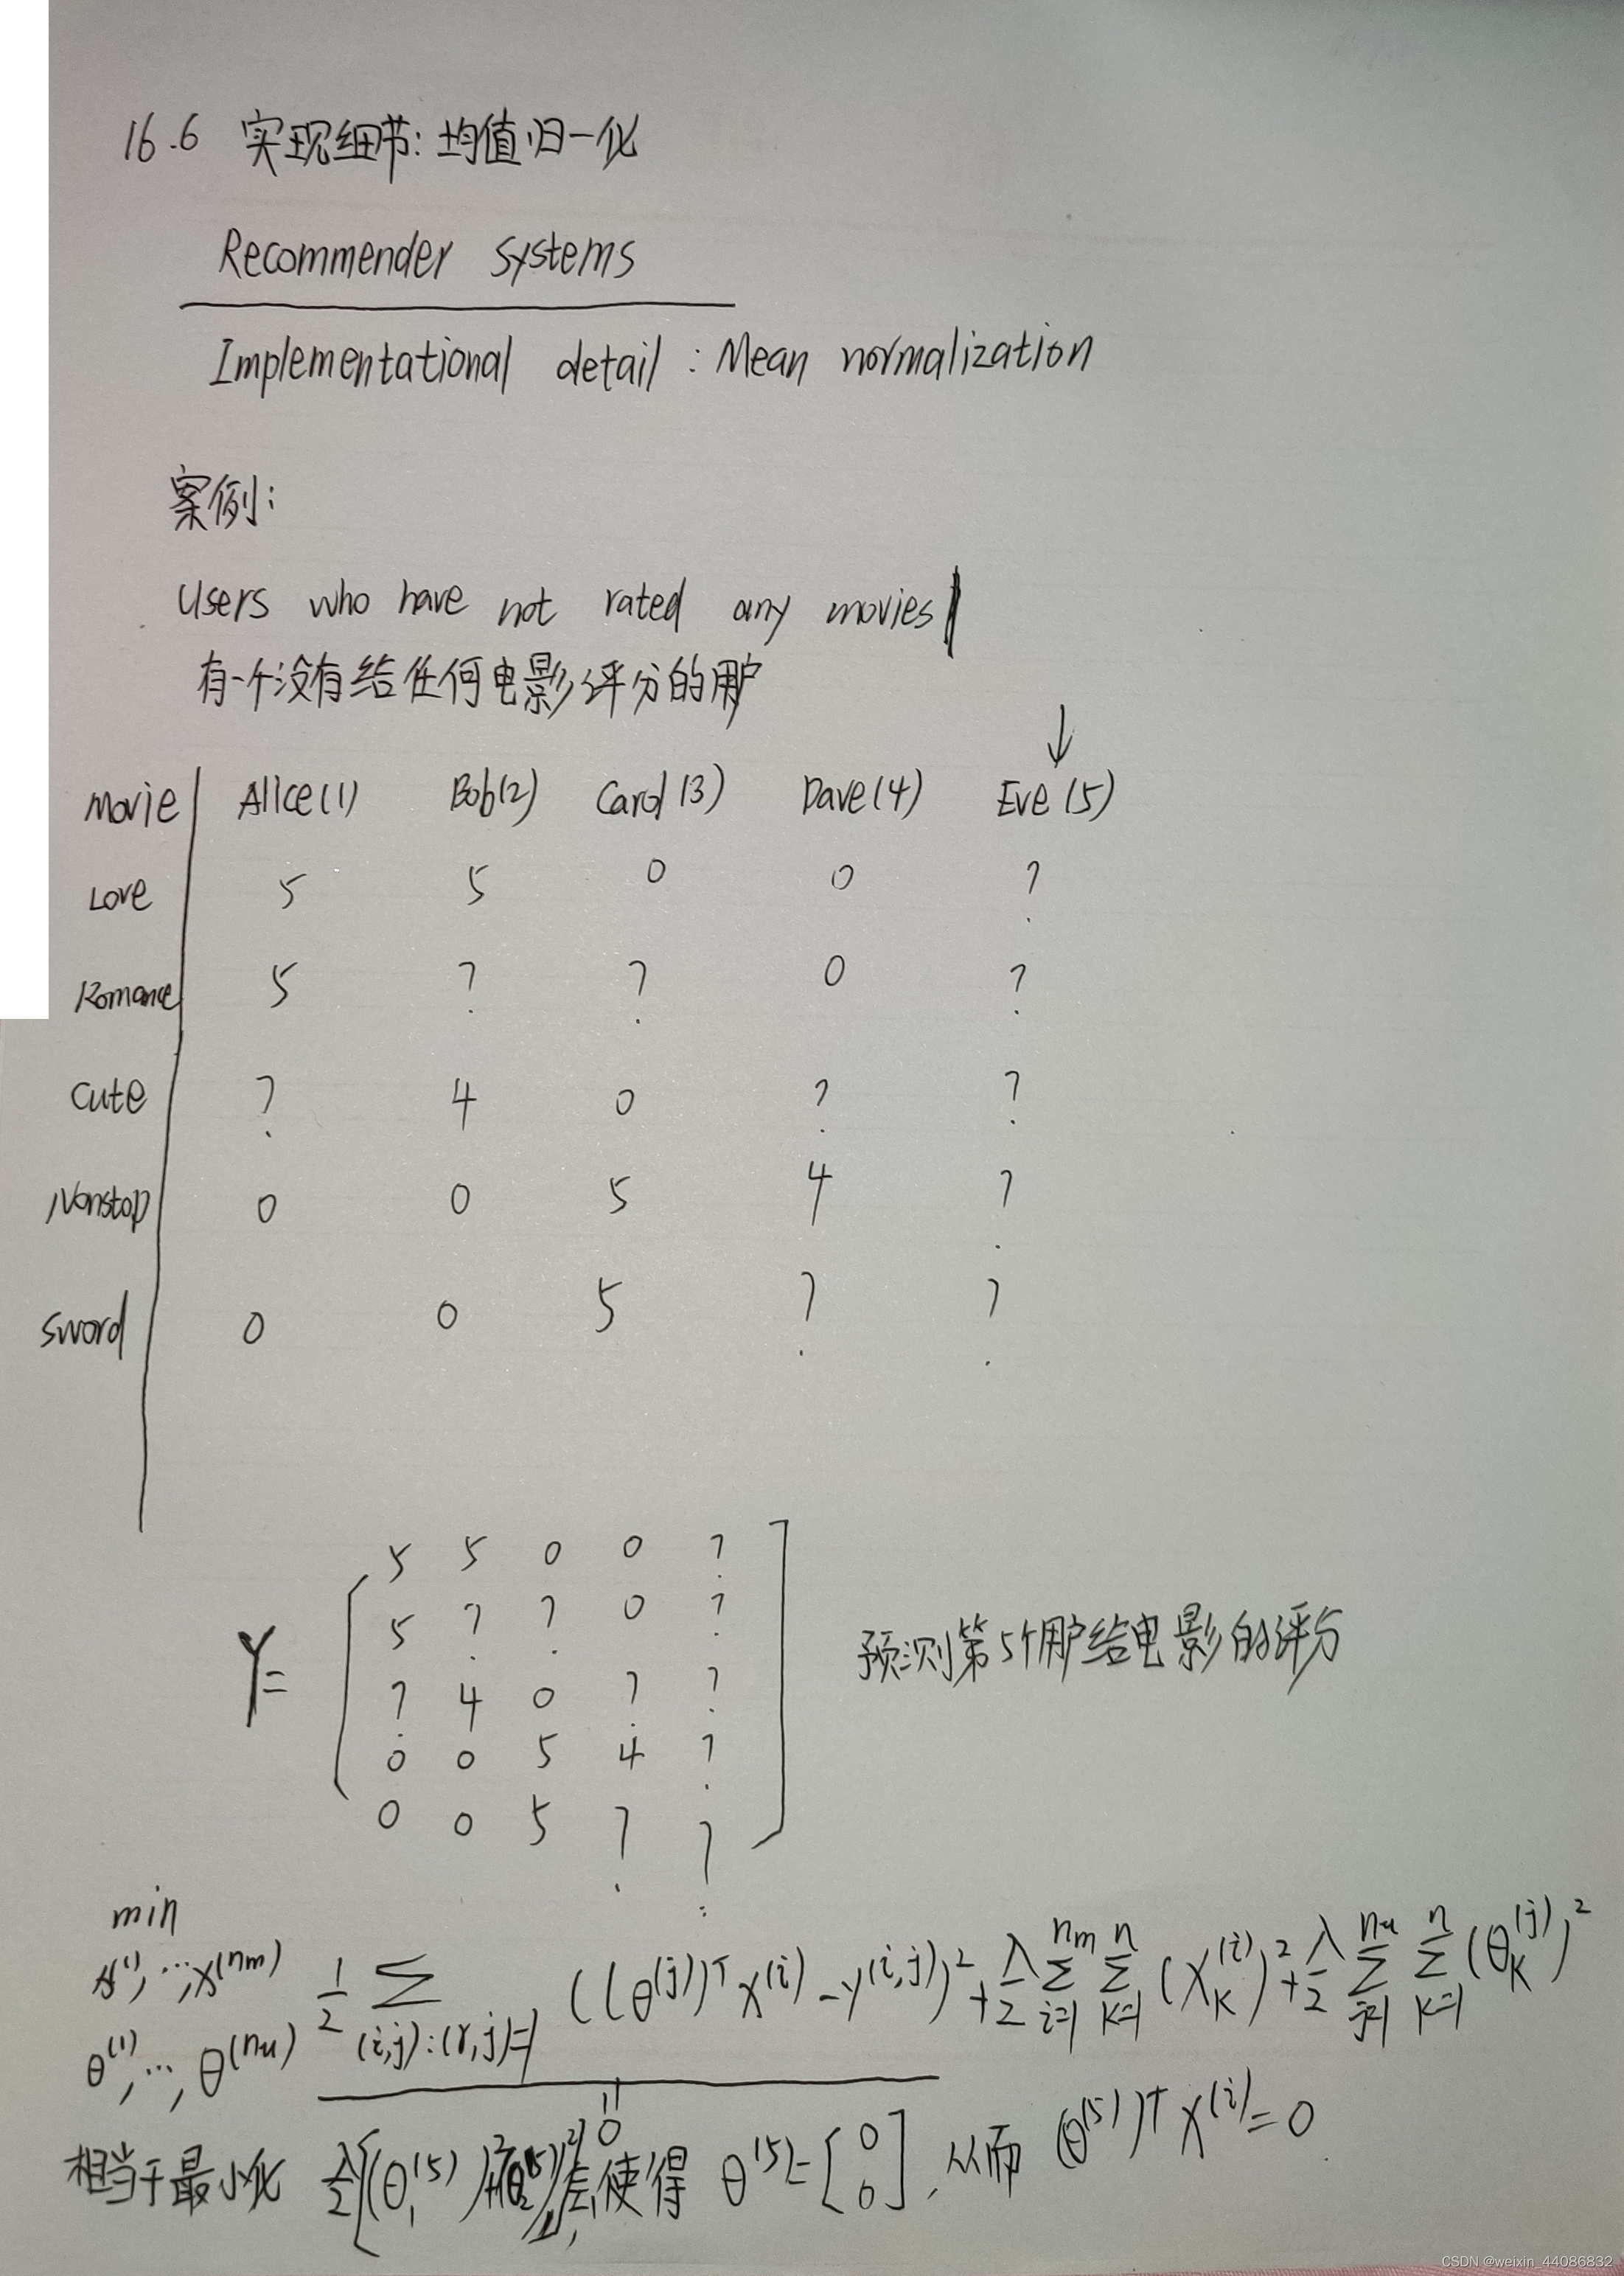 16.6 实现细节:均值归一化
Recommender systems
Implementational detail : Mean normalization
案例:
Users who have not rated any movies
有一个没有给任何电影评分的用户
↓
Movie Alice(1) Bob(2) Carol(3) Dave(4) Eve(5)
Love 5 5 0 0 ?
Romance 5 ? ? 0 ?
Cute ? 4 0 ? ?
Nonstop 0 0 5 4 ?
Sword 0 0 5 ? ?
5 5 0 0 ?
5 ? ? 0 ?
Y= 预测第5个用户给电影的评分
? 4 0 ? ?
0 0 5 4 ?
0 0 5 ? ?
min
x^(1),...,x^(nm) 1/2 Σ (i,j):(r,j)=1 ((θ^(j))^T x^(i) - y^(i,j))^2 + λ/2 Σ i=1 nm Σ k=1 n (x_k^(i))^2 + λ/2 Σ j=1 nu Σ k=1 n (θ_k^(j))^2
θ^(1),...,θ^(nu)
=0
相当于最小化 λ/2[(θ_1^(5))^2+(θ_2^(5))^2] 使得 θ^(5)=[0 0], 从而 (θ^(5))^T x^(i)=0
CSDN @weixin_44086832